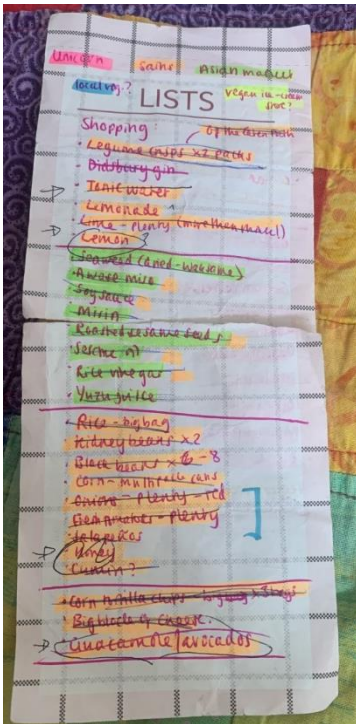 Unicorn Sains Asian market
local veg.? vegan ice-cream
LISTS
Shopping: Off the Eaten Path
• Legume crisps x2 packs
• Didsbury gin
• Tonic water
• Lemonade
• Lime - plenty (more than three!)
• Lemon?
• Seaweed (dried - wakame)
• Awase miso
• Soy sauce
• Mirin
• Roasted sesame seeds
• Sesame oil
• Rice vinegar
• Yuzu juice
• Rice - big bag
• Kidney beans x2
• Black beans x 6 - 8
• Corn - multipack cans
• Onions - plenty - red
• Fresh tomatoes - plenty
• Jalapeños
• Honey
• Cumin?
• Corn tortilla chips - big bag x 3 bags
• Big block of cheese.
• Guacamole/avocados